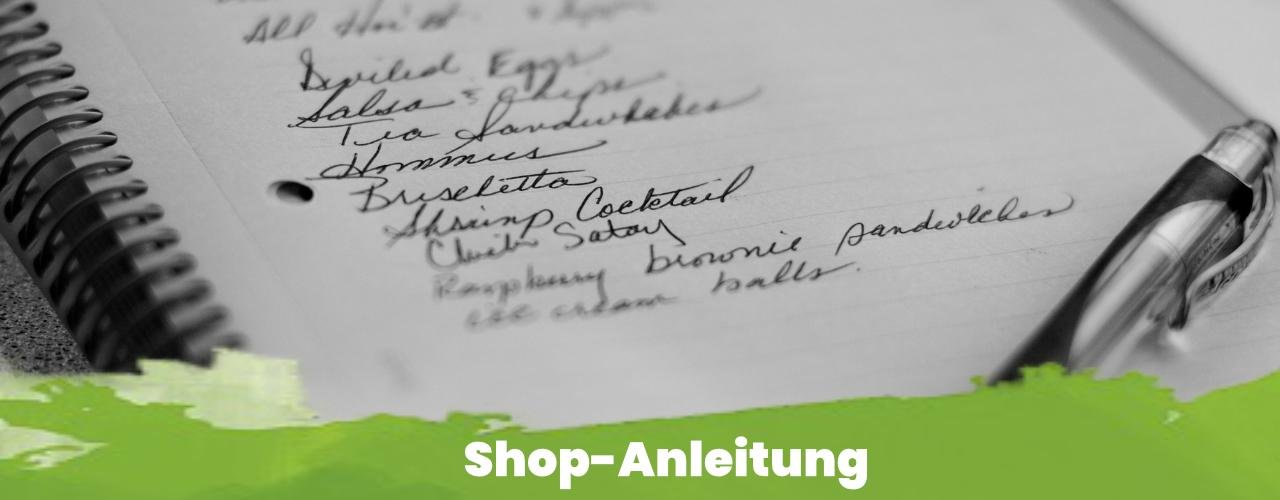 All
Deviled Eggs
Salsa & Chips
Tea Sandwhches
Hommus
Bruschetta
Shrimp Cocktail
Satay
Raspberry brownie sandwiches
ice cream balls.
Shop-Anleitung